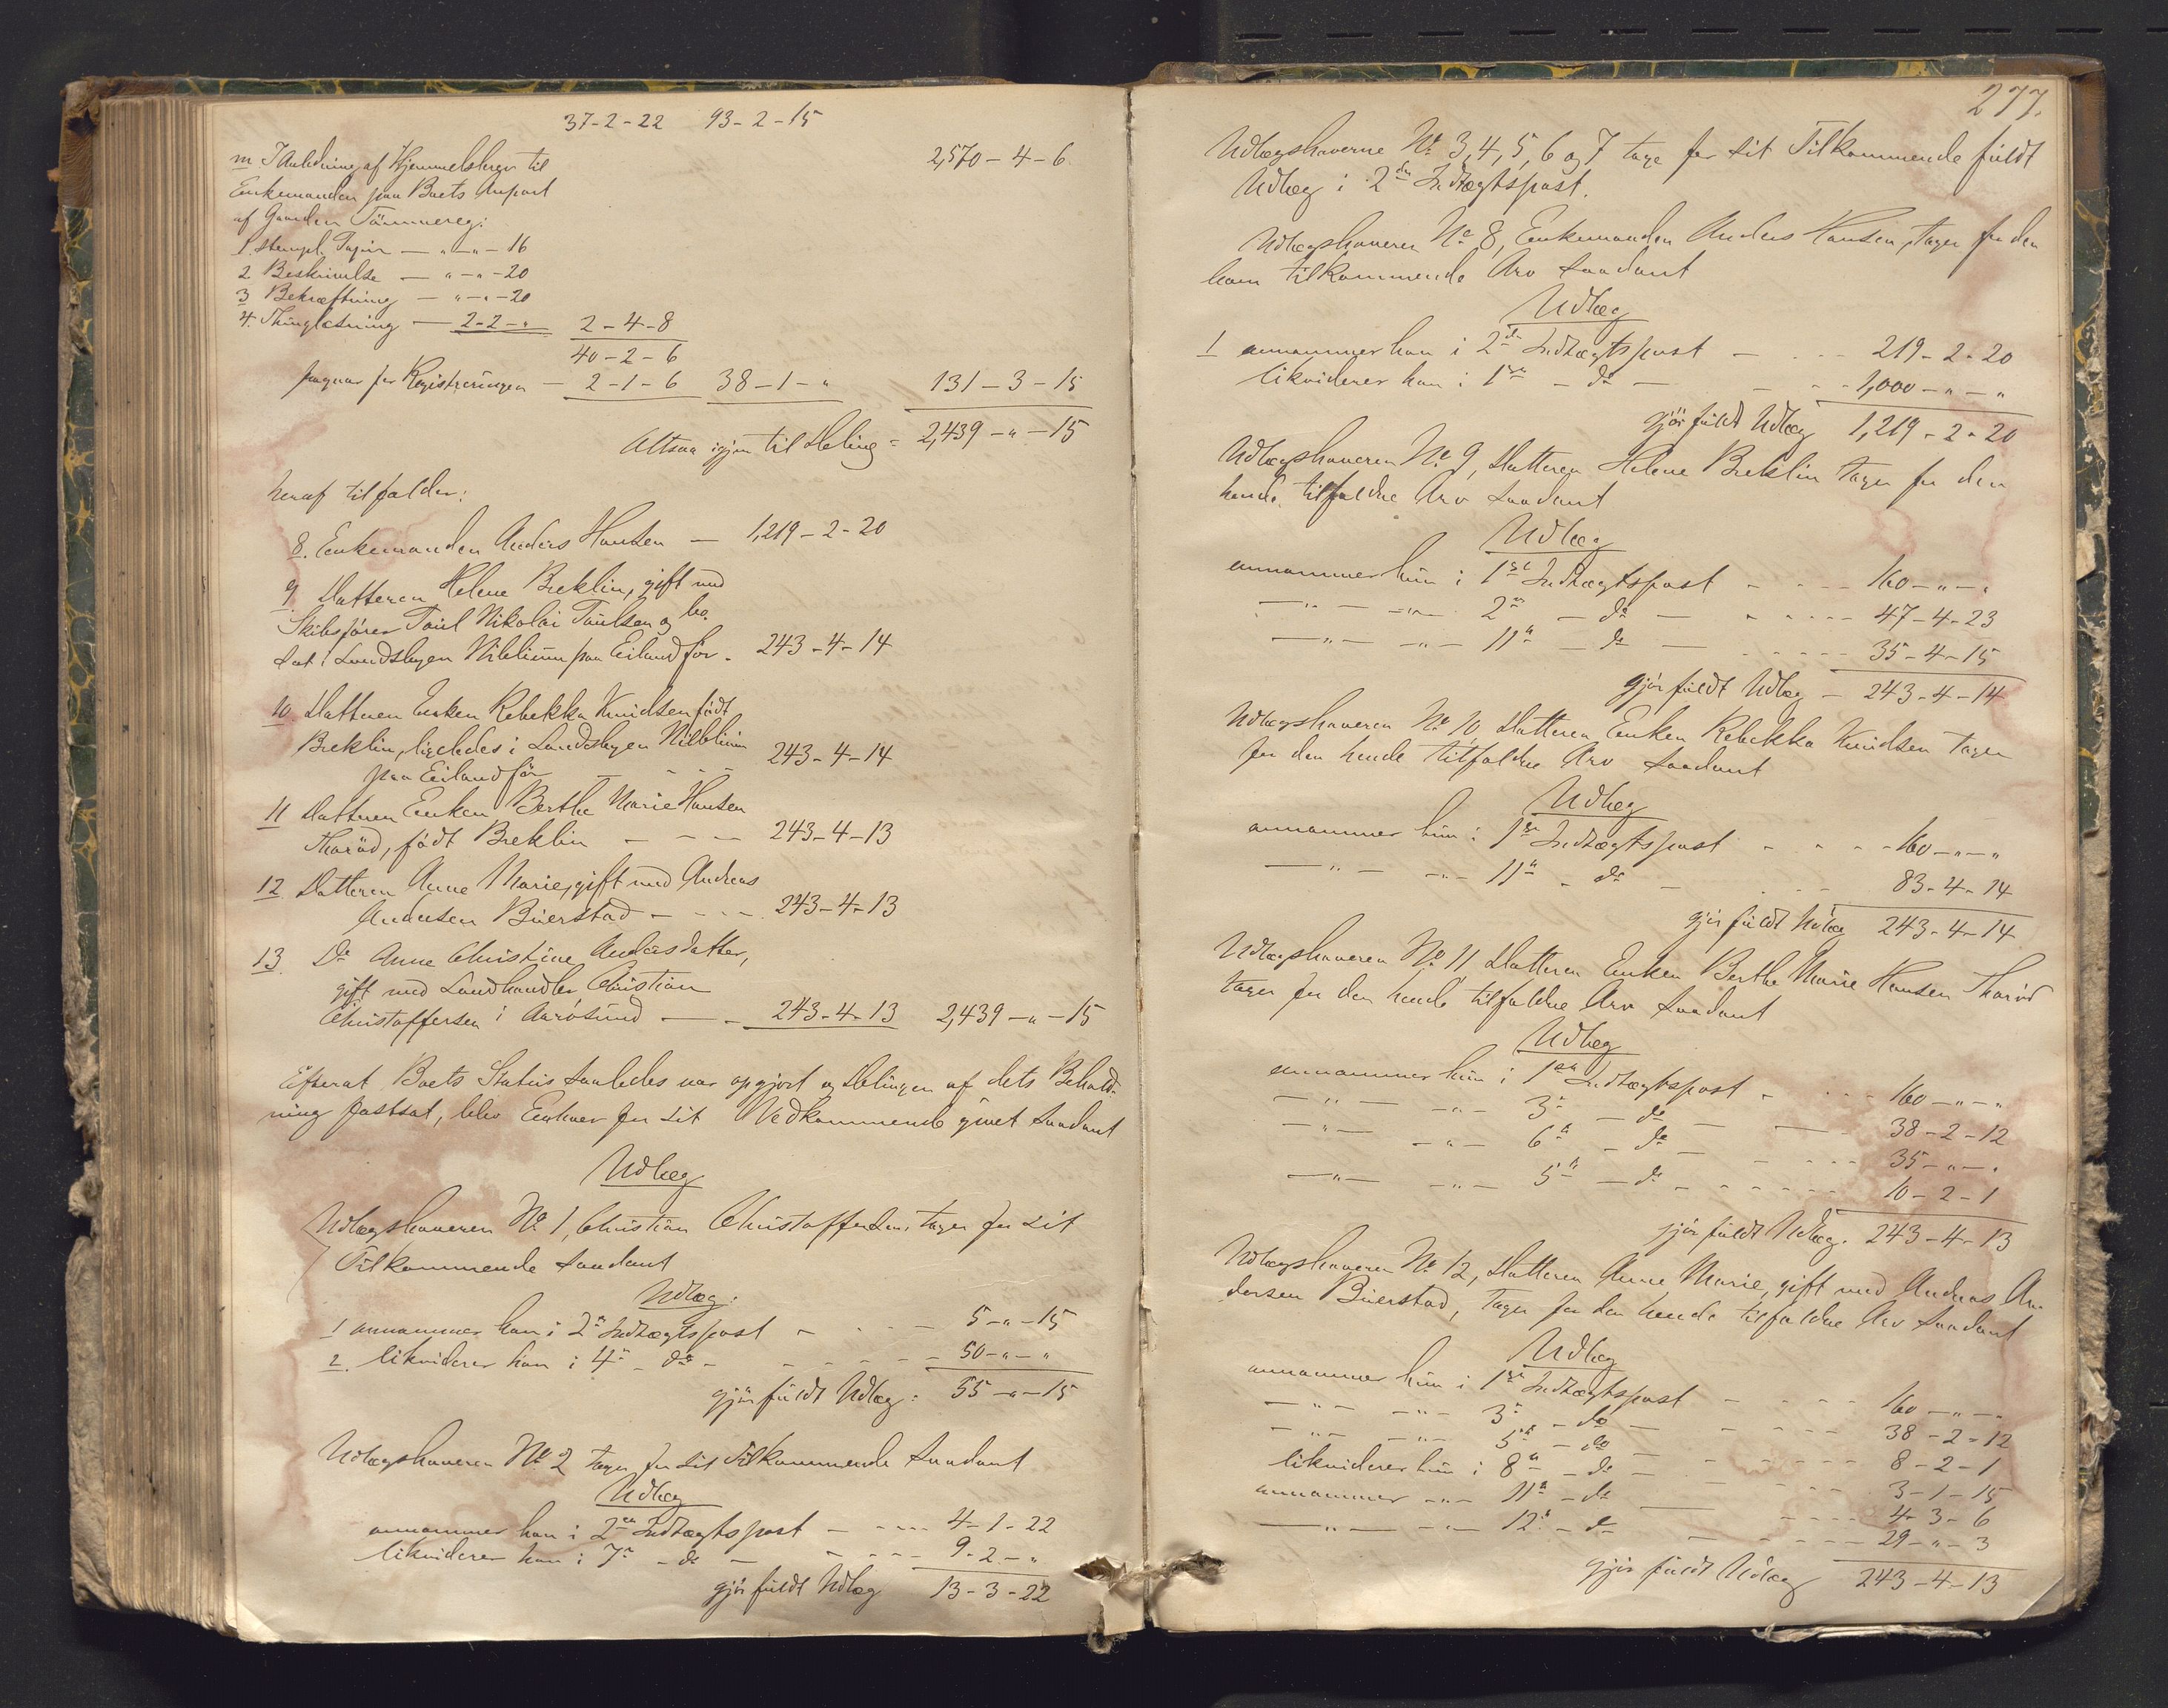 37-2-22 93-2-15
m I Anledning af Hjemmelsbrev til 2,570-4-6
Enkemanden paa Boets Anpart
af Gaarden Tømmereg:
1. stempl. Papir — „ — „ - 16
2 Beskrivelse — „ — „ - 20
3 Bekræftning — „ — „ - 20
4. Thinglæsning — 2-2-„ 2-4-8
40-2-6
for Registreringen — 2-1-6 38-1-„ 131-3-15
Altsaa igjen til Deling = 2,439-„-15
heraf tilfalder:
8. Enkemanden Anders Hansen — 1,219-2-20
9. Datteren Helene Breklin, gift med
Skibsfører Paul Nikolai Paulsen og bo-
sat i Landsbyen Niblium paa Eiland før - 243-4-14
10. Datteren Enken Rebekka Knudsen født
Breklin, ligeledes i Landsbyen Niblium
paa Eiland før — - - - 243-4-14
11 Datteren Enken Berthe Marie Hansen
Tharød, født Breklin — - - 243-4-13
12 Datteren Anne Marie, gift med Andreas
Andersen Buerstad - - - - 243-4-13
13. Do Anne Christine Andersdatter,
gift med Landhandler Christian
Christoffersen i Aarøsund — - 243-4-13 2,439-„-15
Efterat Boets Status saaledes var opgjort og Delingen af dets Behold-
ning fastsat, blev Enhver for sit Vedkommende givet saadant
Udlæg
Udlægshaveren No 1, Christian Christoffersen, tager for sit
Tilkommende saadant
Udlæg:
1 annammer han i 2n Indtægtspost - - - 5-„-15
2. likviderer han i 4n - do - - - - - 50-„-„
gjør fuldt Udlæg: 55-„-15
Udlægshaveren No 2 tager for sit Tilkommende saadant
Udlæg
annammer han i 2en Indtægtspost - - - - 4-1-22
likviderer han i 7n - do - - - - 9-2-„
gjør fuldt Udlæg 13-3-22
277.
Udlægshaverne No 3, 4, 5, 6 og 7 tage for sit Tilkommende fuldt
Udlæg i 2den Indtægtspost.
Udlægshaveren No 8, Enkemanden Anders Hansen, tager for den
ham tilkommende Arv saadant
Udlæg
1 annammer han i 2den Indtægtspost - - - - 219-2-20
likviderer han i 1ste - do — - - - 1,000-„-„
gjør fuldt Udlæg 1,219-2-20
Udlægshaveren No 9, Datteren Helene Breklin tager for den
hende tilfaldne Arv saadant
Udlæg
annammer hun i 1ste Indtægtspost - - - - 160-„-„
—„— -„- 2n - do — - - - - 47-4-23
—„— -„- 11n - do — - - - - 35-4-15
gjør fuldt Udlæg — 243-4-14
Udlægshaveren No 10, Datteren Enken Rebekka Knudsen tager
for den hende tilfaldne Arv saadant
Udlæg
annammer hun i 1ste Indtægtspost - - - - 160-„-„
—„— -„- 11n - do — - - - 83-4-14
gjør fuldt Udlæg 243-4-14
Udlægshaveren No 11 Datteren Enken Berthe Marie Hansen Tharød
tager for den hende tilfaldne Arv saadant
Udlæg
annammer hun i 1ste Indtægtspost - - - - 160-„-„
—„— -„- 3n - do - — 38-2-12
—„— -„- 6n - do - - - - - 35-„-„
—„— -„- 5n - do - - - - - 10-2-1
gjør fuldt Udlæg. 243-4-13
Udlægshaveren No 12, Datteren Anne Marie, gift med Andreas An-
dersen Buerstad, tager for den hende tilfaldne Arv saadant
Udlæg
annammer hun i 1ste Indtægtspost - - - - 160-„-„
—„— -„- 3n - do - - - - - 38-2-12
—„— -„- 5n - do — - - - - 8-2-1
likviderer hun i 8n - do - - - - 3-1-15
annammer -„- 11n - do — - - - - 4-3-6
—„— -„- 12n - do - - - - 29-„-3
gjør fuldt Udlæg 243-4-13